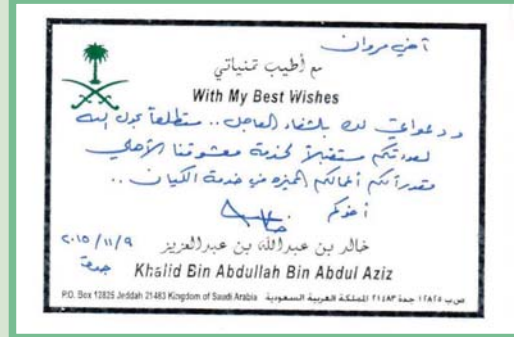 أخي مروان
مع أطيب تمنياتي
With My Best Wishes
ودعواتي لك بالشفاء العاجل .. متطلعاً بحول الله
لعودتكم مستقبلاً لخدمة معشوقنا الأهلي
مقدراً لكم أعمالكم المميزه في خدمة الكيان ..
أخوكم
خالد بن عبدالله بن عبدالعزيز
٢٠١٥/١١/٩
جدة
Khalid Bin Abdullah Bin Abdul Aziz
P.O. Box 12825 Jeddah 21483 Kingdom of Saudi Arabia ص ب ١٢٨٢٥ جدة ٢١٤٨٣ المملكة العربية السعودية